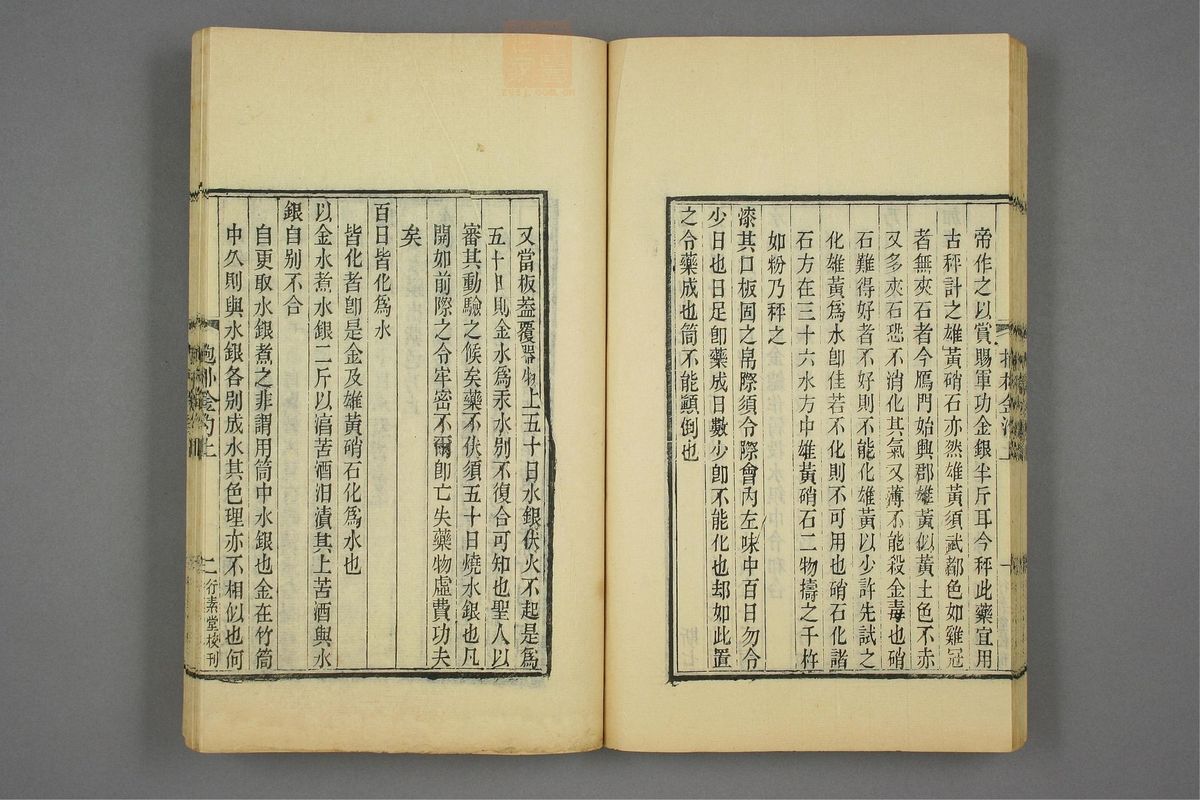 帝作之以賞賜軍功金銀半斤耳今秤此藥宜用
古秤計之雄黃硝石亦然雄黃須武都色如雞冠
者無夾石者今鴈門始興郡雄黃似黃土色不赤
又多夾石恐不消化其氣又薄不能殺金毒也硝
石難得好者不好則不能化雄黃以少許先試之
化雄黃爲水卽佳若不化則不可用也硝石化諸
石方在三十六水方中雄黃硝石二物擣之千杵
如粉乃秤之
漆其口板固之帛際須令際會內左味中百日勿令
少日也日足卽藥成日數少卽不能化也却如此置
之令藥成也筒不能顚倒也
又當板葢覆器物上五十日水銀伏火不起是爲
五十日則金水爲汞水别不復合可知也聖人以
審其動驗之候矣藥不伏須五十日燒水銀也凡
開如前際之令牢密不爾卽亡失藥物虛費功夫
矣
百日皆化爲水
皆化者卽是金及雄黃硝石化爲水也
以金水煮水銀二斤以淯苦酒汨漬其上苦酒與水
銀自别不合
自更取水銀煮之非謂用筒中水銀也金在竹筒
中久則與水銀各别成水其色理亦不相似也何
抱朴金汋上
二
行素堂校刊